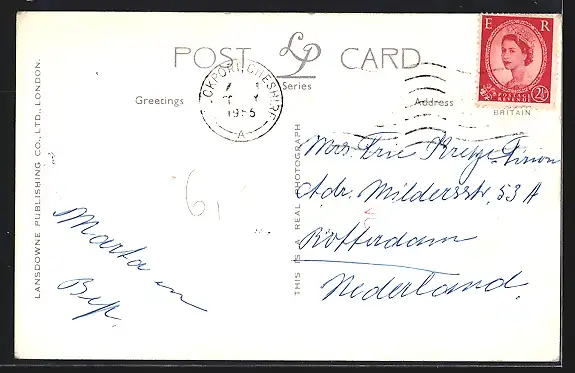 POST LP CARD
Series
Greetings
Address
STOCKPORT, CHESHIRE
1955
A
E R
POSTAGE REVENUE
2½
BRITAIN
LANSDOWNE PUBLISHING CO., LTD., LONDON.
THIS IS A REAL PHOTOGRAPH
Marta en
Bep.
Mrs.
Mildersstr. 53 A
Rotterdam
Nederland.
61